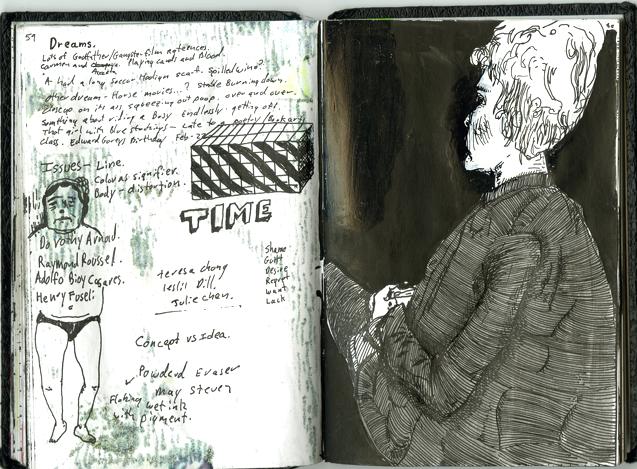 59
Dreams.
Lots of Godfather/Gangster film references.
Carmen and Playing cards and Blood.
A had a long, soccer Hooligan scarf. Spilled wine?
other dream - Horse movies...? Stable Burning down.
on its ass squeezing out poop. over and over.
something about riding a Busy Endlessly getting off.
That girl with blue stockings - Late to a poetry/Book art
class. Edward Goreys Birthday Feb. 22
Issues - Line.
Colour as signifier.
Body - distortion.
TIME
Dorothy Arnold.
Raymond Roussel.
Adolfo Bioy Casares.
Henry Fuseli
Shame
Guilt
Desire
Regret
want
Lack
teresa chong
leslie Dill.
Julie chan.
Concept vs Idea.
Powderd Eraser
may Steven
Floking wet ink
with pigment.
60